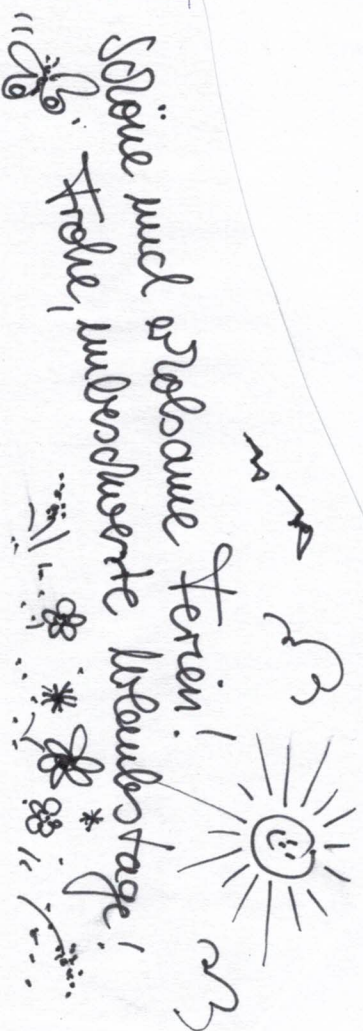 Schöne und erholsame Ferien!
Frohe, unbeschwerte Urlaubstage!